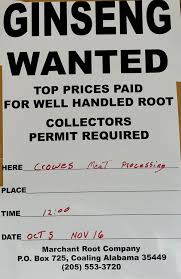 GINSENG
WANTED
TOP PRICES PAID
FOR WELL HANDLED ROOT
COLLECTORS
PERMIT REQUIRED
HERE Crowes Meat Processing
PLACE
TIME 12:00
DATE OCT 5 NOV 16
Marchant Root Company
P.O. Box 725, Coaling Alabama 35449
(205) 553-3720